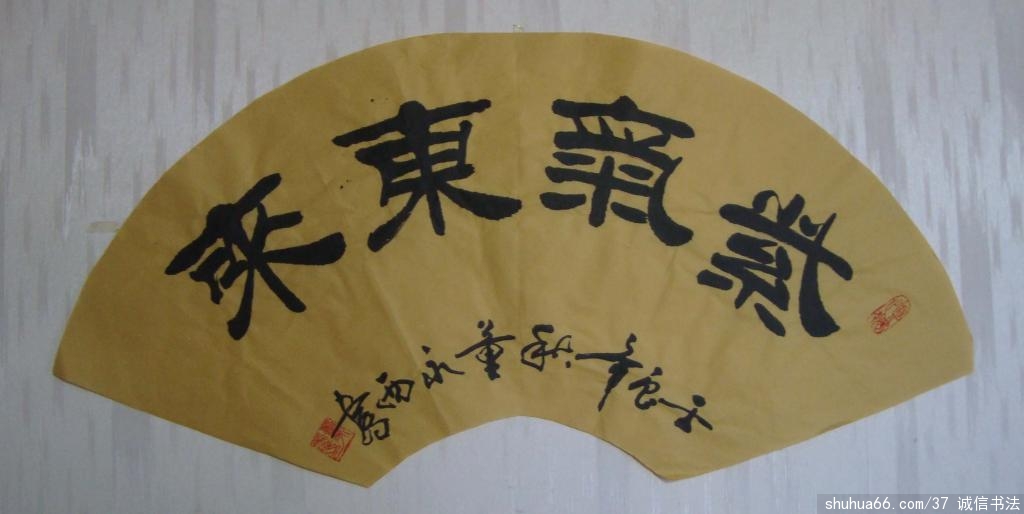 紫氣東來
年秋董永西書
shuhua66.com/37 诚信书法